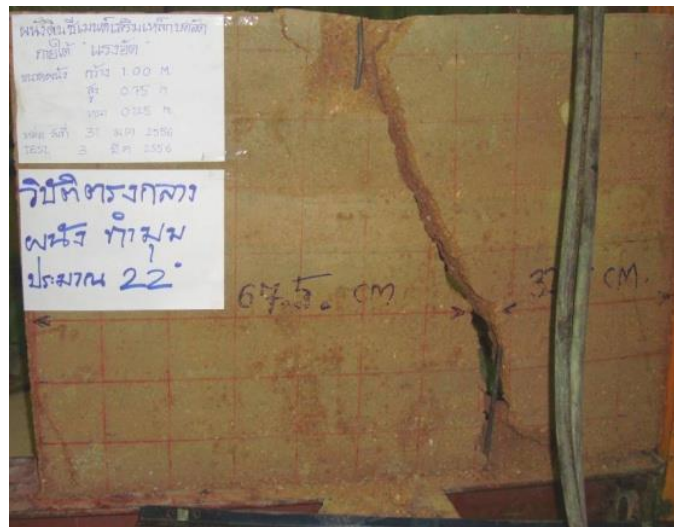 ผนังดินซีเมนต์เสริมเหล็กชนิดอัด
ภายใต้ "แรงอัด"
ขนาดผนัง กว้าง 1.00 M
สูง 0.75 M
หนา 0.125 M
หล่อ วันที่ 31 ม.ค 2556
TEST 3 มี.ค 2556
วิบัติตรงกลาง
ผนัง ทำมุม
ประมาณ 22°
67.5. cm
cm.